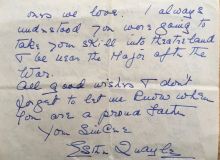 ones we love. I always
understood you were going to
take your skill into theatreland
& be near the Major after the
War.
All good wishes & don't
forget to let me know when
you are a proud father
Your Sincere
Quayle